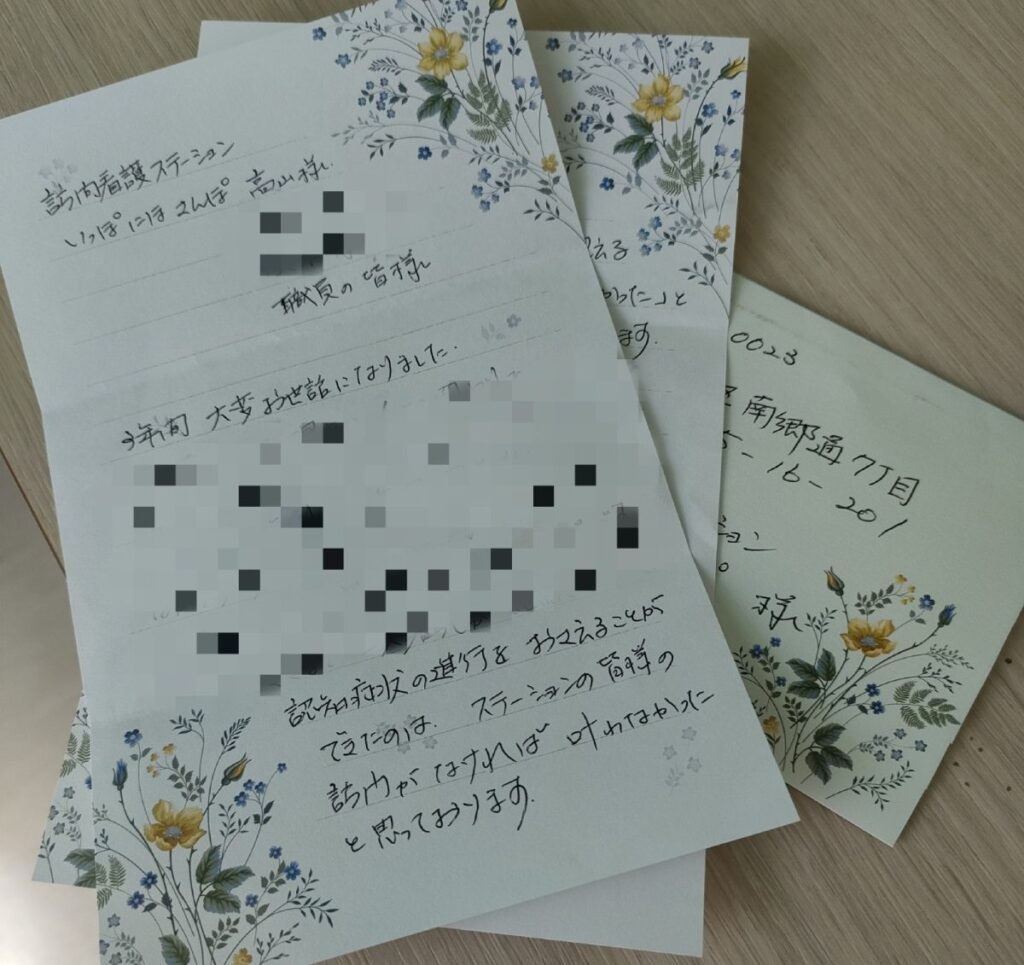 訪問看護ステーション
いっぽにほさんぽ 高山様
職員の皆様
3年間 大変お世話になりました.
認知症状の進行を おさえることが
できたのは. ステーションの皆様の
訪問がなければ 叶わなかった
と思っております.
える
った」と
ます.
0023
南郷通7丁目
5-16-201
ョン
様